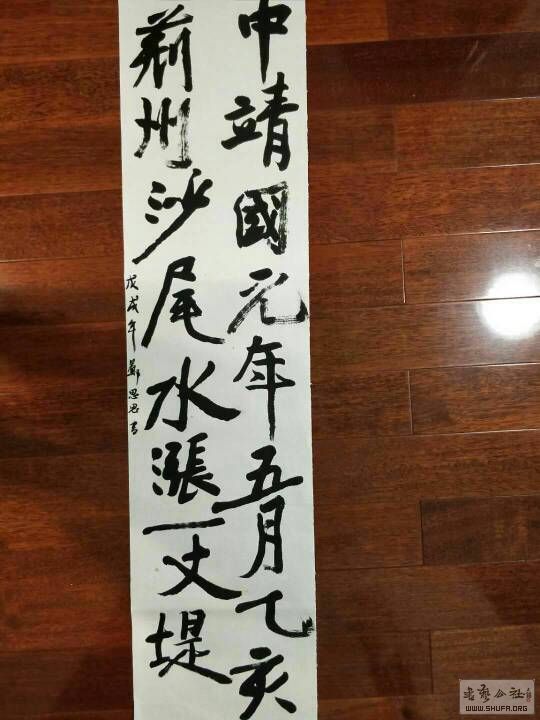 中靖國元年五月乙亥
荊州沙尾水漲一丈堤
戊戌年 鄭思思書
書藝公社
WWW.SHUFA.ORG